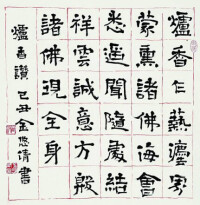 爐香乍爇灋界
蒙熏諸佛海會
悉遥聞隨處結
祥雲誠意方殷
諸佛現全身
爐香讚 己丑金悠倩書